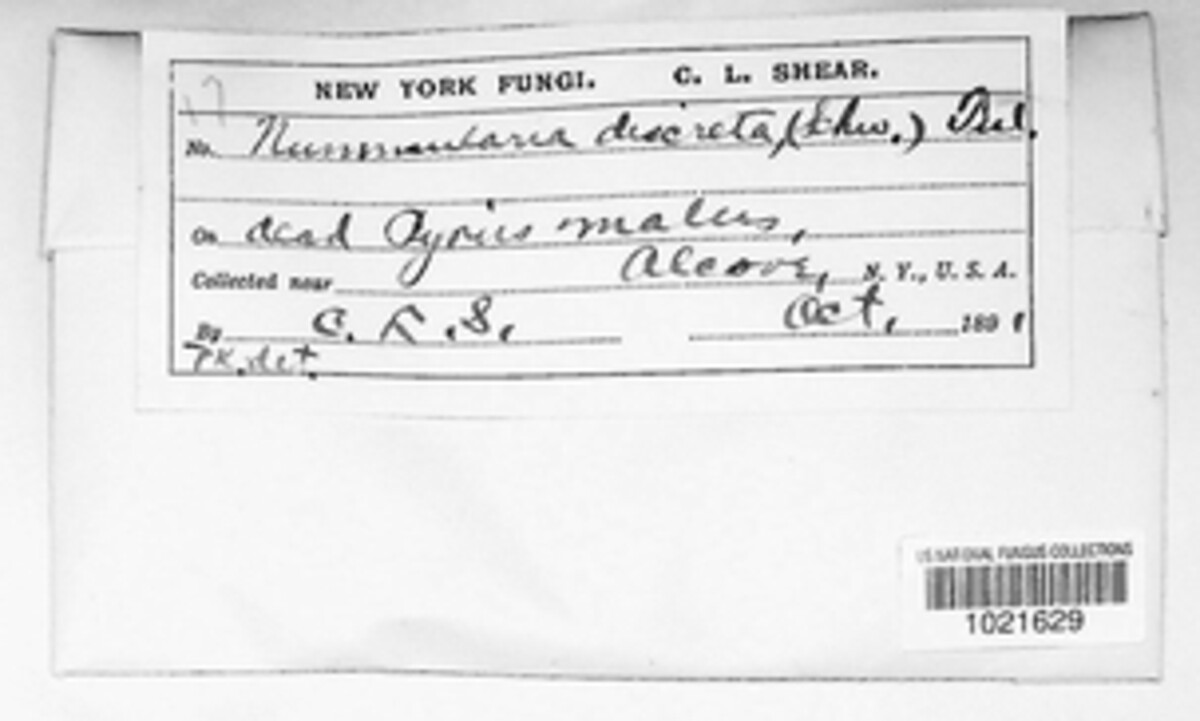 NEW YORK FUNGI. C. L. SHEAR.
17
No. Nummularia discreta, (Schw.) Tul.
On dead Pyrus malus,
Collected near Alcove, N. Y., U. S. A.
By C. L. S. Oct, 1891
Pk. det.
US NATIONAL FUNGUS COLLECTIONS
1021629